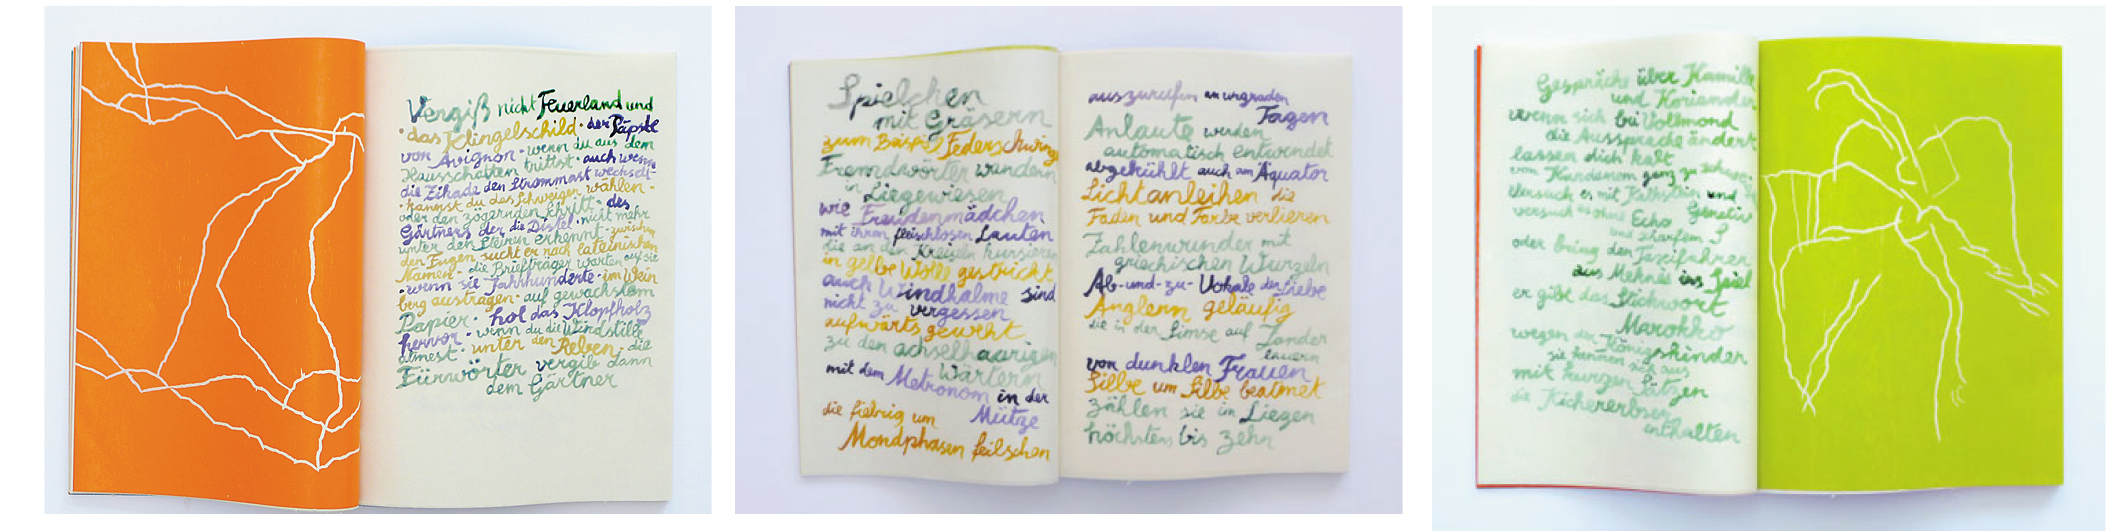 Vergiß nicht Feuerland und
· das Klingelschild · der Päpste
von Avignon · wenn du aus dem
Hausschatten trittst · auch wenn
die Zikade den Strommast wechselt ·
· kannst du das Schweigen wählen ·
oder den zögernden Schritt · des
Gärtners der die Distel · nicht mehr
unter den Steinen erkennt · zwischen
den Fugen sucht er nach lateinischen
Namen · die Briefträger warten auf sie
· wenn sie Jahrhunderte · im Wein
berg austragen · auf gewachstem
Papier · hol das Klopfholz
hervor · wenn du die Windstille
atmest · unter den Reben · die
Fürwörter vergib dann
dem Gärtner
Spielchen
mit Gräsern
zum Beispiel Federschwingel
Fremdwörter wandern
in Liegewiesen
wie Freudenmädchen
mit ihren fleischlosen Lauten
die an den Kreiseln kursieren
in gelbe Wolle gestrickt
auch Windhalme sind
nicht zu vergessen
aufwärts geweht
zu den achselhaarigen
Wärtern
mit dem Metronom in der
Mütze
die fiebrig um
Mondphasen feilschen
auszurufen an ungraden
Tagen
Anlaute werden
automatisch entwendet
abgekühlt auch am Äquator
Lichtanleihen die
Faden und Farbe verlieren
Zahlenwunder mit
griechischen Wurzeln
Ab-und-zu-Vokale der Liebe
Anglern geläufig
die in der Simse auf Zander
lauern
von dunklen Frauen
Silbe um Silbe beatmet
zählen sie im Liegen
höchstens bis zehn
Gespräche über Kamille
und Koriander
wenn sich bei Vollmond
die Aussprache ändert
lassen dich kalt
von Kardamom ganz zu
Versuch es mit und
versuch es ohne Echo Genetiv
und scharfem S
oder bring den Taxifahrer
aus Meknès ins Spiel
er gibt das Stichwort
Marokko
wegen der Königskinder
sie kennen sich aus
mit kurzen Sätzen
die Kichererbsen
enthalten